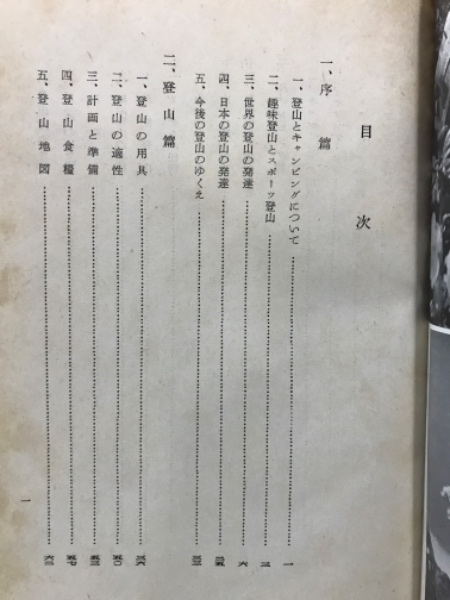 目次
一、序篇
一、登山とキャンピングについて……一
二、趣味登山とスポーツ登山……三
三、世界の登山の発達……六
四、日本の登山の発達……
五、今後の登山のゆくえ……三三
二、登山篇
一、登山の用具……三六
二、登山の適性……五〇
三、計画と準備……五三
四、登山食糧……五七
五、登山地図……六三
一